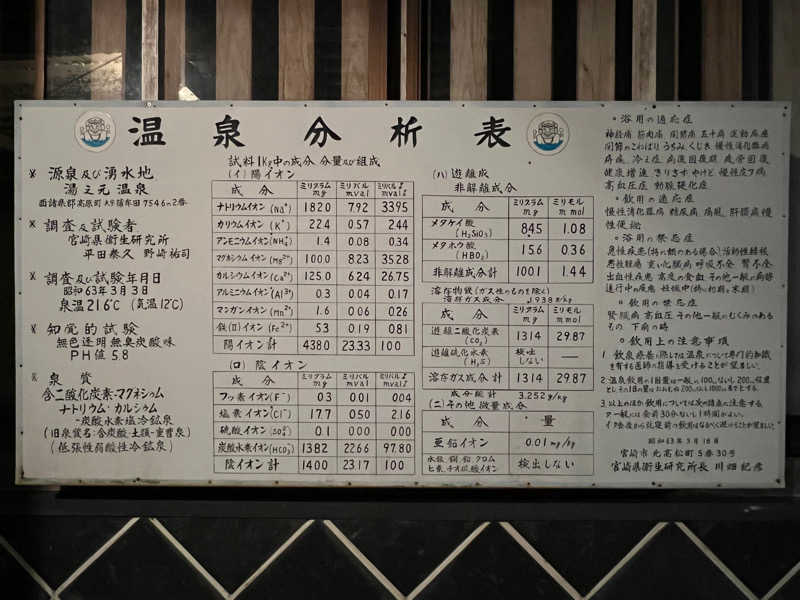 温泉分析表
※ 源泉及び湧水地
湯之元温泉
西諸県郡高原町大字蒲牟田7546の2番
※ 調査及試験者
宮崎県衛生研究所
平田泰久 野崎祐司
※ 調査及び試験年月日
昭和63年3月3日
泉温21.6℃ (気温12℃)
※ 知覚的試験
無色透明無臭炭酸味
PH値 5.8
※ 泉質
含二酸化炭素-マグネシウム
ナトリウム・カルシウム
-炭酸水素塩冷鉱泉
(旧泉質名:含炭酸-土類-重曹泉)
(低張性弱酸性冷鉱泉)
試料1Kg中の成分 分量及び組成
(イ) 陽イオン
成分 ミリグラム mg ミリバル mval ミリバル% mval%
ナトリウムイオン(Na⁺) 182.0 7.92 33.95
カリウムイオン(K⁺) 22.4 0.57 2.44
アンモニウムイオン(NH₄⁺) 1.4 0.08 0.34
マグネシウムイオン(Mg²⁺) 100.0 8.23 35.28
カルシウムイオン(Ca²⁺) 125.0 6.24 26.75
アルミニウムイオン(Al³⁺) 0.3 0.04 0.17
マンガンイオン(Mn²⁺) 1.6 0.06 0.26
鉄(II)イオン(Fe²⁺) 5.3 0.19 0.81
陽イオン計 438.0 23.33 100
(ロ) 陰イオン
成分 ミリグラム mg ミリバル mval ミリバル% mval%
フッ素イオン(F⁻) 0.3 0.01 0.04
塩素イオン(Cl⁻) 17.7 0.50 2.16
硫酸イオン(SO₄²⁻) 0.1 0.00 0.00
炭酸水素イオン(HCO₃⁻) 1382 22.66 97.80
陰イオン計 1400 23.17 100
(ハ) 遊離成
非解離成分
成分 ミリグラム mg ミリモル m mol
メタケイ酸(H₂SiO₃) 84.5 1.08
メタホウ酸(HBO₂) 15.6 0.36
非解離成分計 100.1 1.44
溶存物質(ガス性のものを除く)
溶存ガス成分 1.938g/kg
成分 ミリグラム mg ミリモル m mol
遊離二酸化炭素(CO₂) 1314 29.87
遊離硫化水素(H₂S) 検出しない ―
溶存ガス成分計 1314 29.87
成分総計 3.252g/kg
(ニ)その他微量成分
成分 量
亜鉛イオン 0.01mg/kg
水銀、銅、鉛、クロム ヒ素、チオ硫酸イオン 検出しない
○浴用の適応症
神経痛 筋肉痛 関節痛 五十肩 運動麻痺
関節のこわばり うちみ くじき 慢性消化器病
痔疾 冷え症 病後回復期 疲労回復
健康増進 きりきず やけど 慢性皮フ病
高血圧症 動脈硬化症
○飲用の適応症
慢性消化器病 糖尿病 痛風 肝臓病 慢
性便秘
○浴用の禁忌症
急性疾患(特に熱のある場合) 活動性結核
悪性腫瘍 重い心臓病 呼吸不全 腎不全
出血性疾患 高度の貧血 その他一般の病勢
進行中の疾患 妊娠中(特に初期と末期)
○飲用の禁忌症
腎臓病 高血圧 その他一般のむくみのあ
るもの 下痢の時
○飲用上の注意事項
1. 飲泉療養に際しては温泉について専門的知識
を有する医師の指導を受けることが望ましい。
2. 温泉飲用の1回量は一般に100ないし200cc程度
とし その1日の量はおおむね200ないし1000ccまでとする。
3. 以上のほか飲用については次の諸点に注意する
ア 一般には食前30分ないし1時間がよい。
イ 夕食後から就寝前の飲用はなるべく避けることが望ましい。
昭和63年3月18日
宮崎市北高松町5番30号
宮崎県衛生研究所長 川畑紀彦